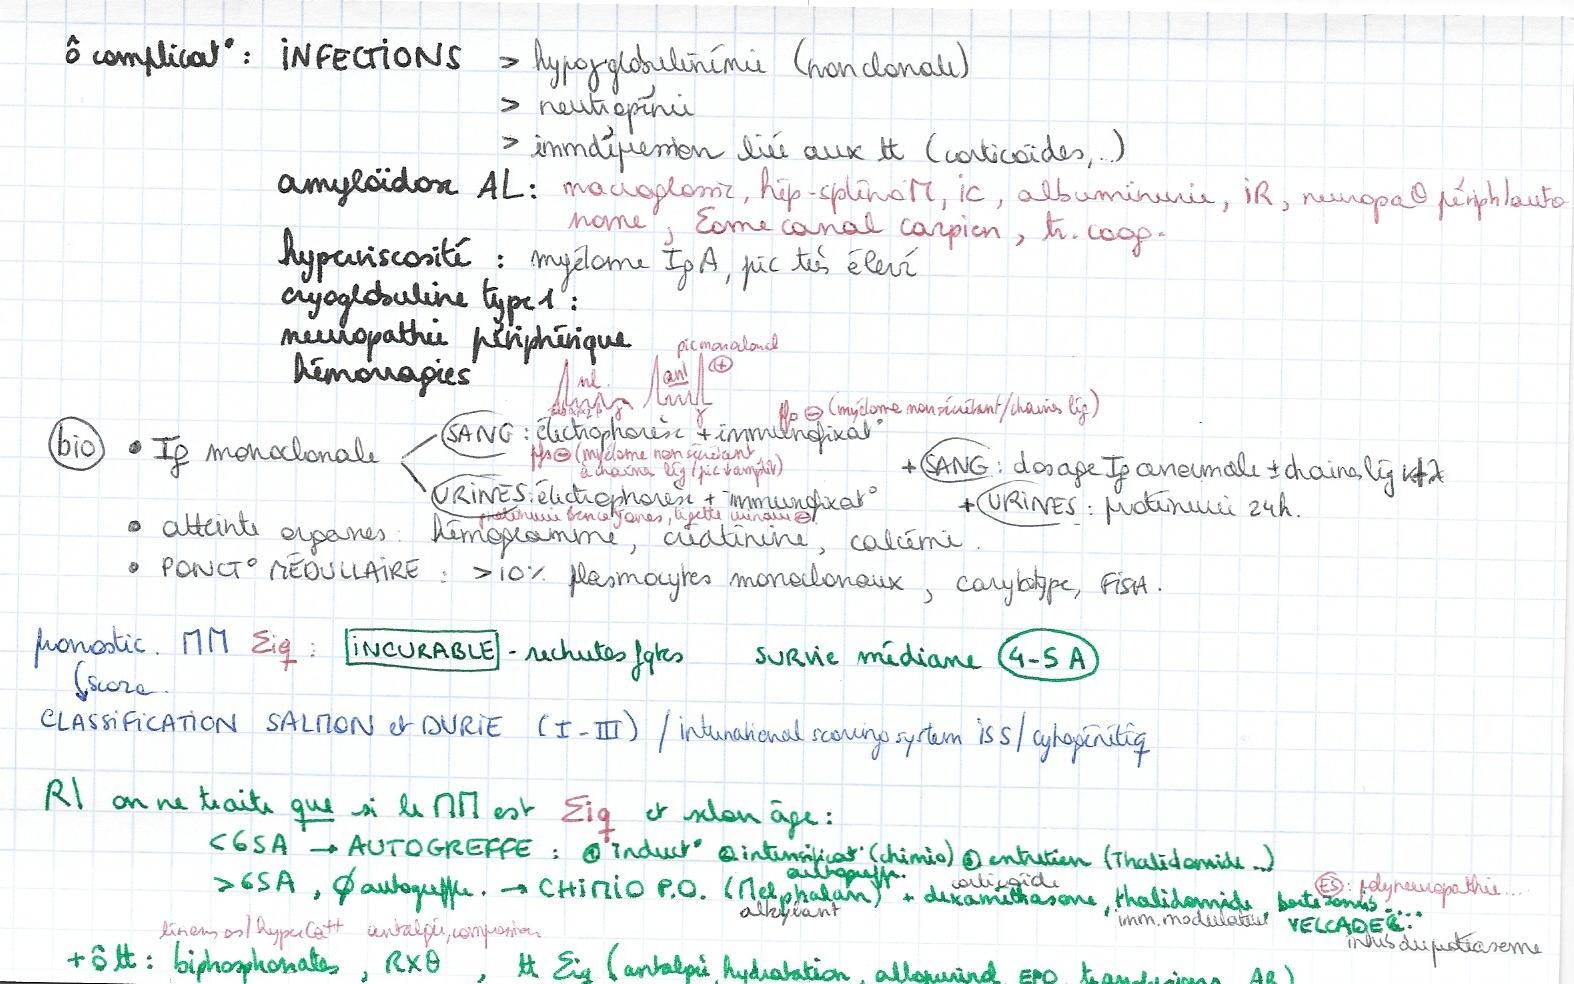 ô complicat° : INFECTIONS > hypogglobulinémie (non clonale)
> neutropénie
> immdépression liée aux tt (corticoïdes,..)
amyloïdose AL : macroglossie, hép-splénoM, ic, albuminurie, iR, neuropaθ périph/auto
nome, Σome canal carpien, tr. coag.
hyperviscosité : myélome IgA, pic très élevé
cryoglobuline type 1 :
neuropathie périphérique
pic monoclonal
hémorragies
nl
anl
⊕
γ γ
⊖ (myélome non sécrétant/chaines lég)
bio • Ig monoclonale
SANG : électrophorèse + immunofixat°
⊖ (myélome non sécrétant
à chaines lég/pic
+ SANG : dosage Ig anormale ± chaines lég κ+λ
URINES : électrophorèse + immunofixat°
+ URINES : protéinurie 24h.
protéinurie bence jones, urinaire ⊖
• atteinte organes : hémogramme, créatinine, calcémie.
• PONCT° MÉDULLAIRE : >10% plasmocytes monoclonaux, caryotype, FiSH.
pronostic. MM Σiq : INCURABLE - rechutes fqtes SURVIE médiane 4-5 A
score
CLASSIFICATION SALMON et DURIE (I-III) / international scoring system iSS / cytogénétiq
R/ on ne traite que si le MM est Σiq et selon âge :
<65A → AUTOGREFFE : ① induct° ② intensificat° (chimio) ③ entretien (Thalidomide ...)
autogreffe.
>65A, ∅ autogreffe. → CHIMIO P.O. (Melphalan) + dexaméthasone, thalidomide,
corticoïde
ES : polyneuropathie....
alkylant
imm.modulateur
VELCADE
inhib du protéasome
liens os/hyperCa++ antalgie, compression
+ ô tt : biphosphonates, RXθ, tt Σiq (antalgie, hydratation, allopurinol, EPO, transfusions, AB)